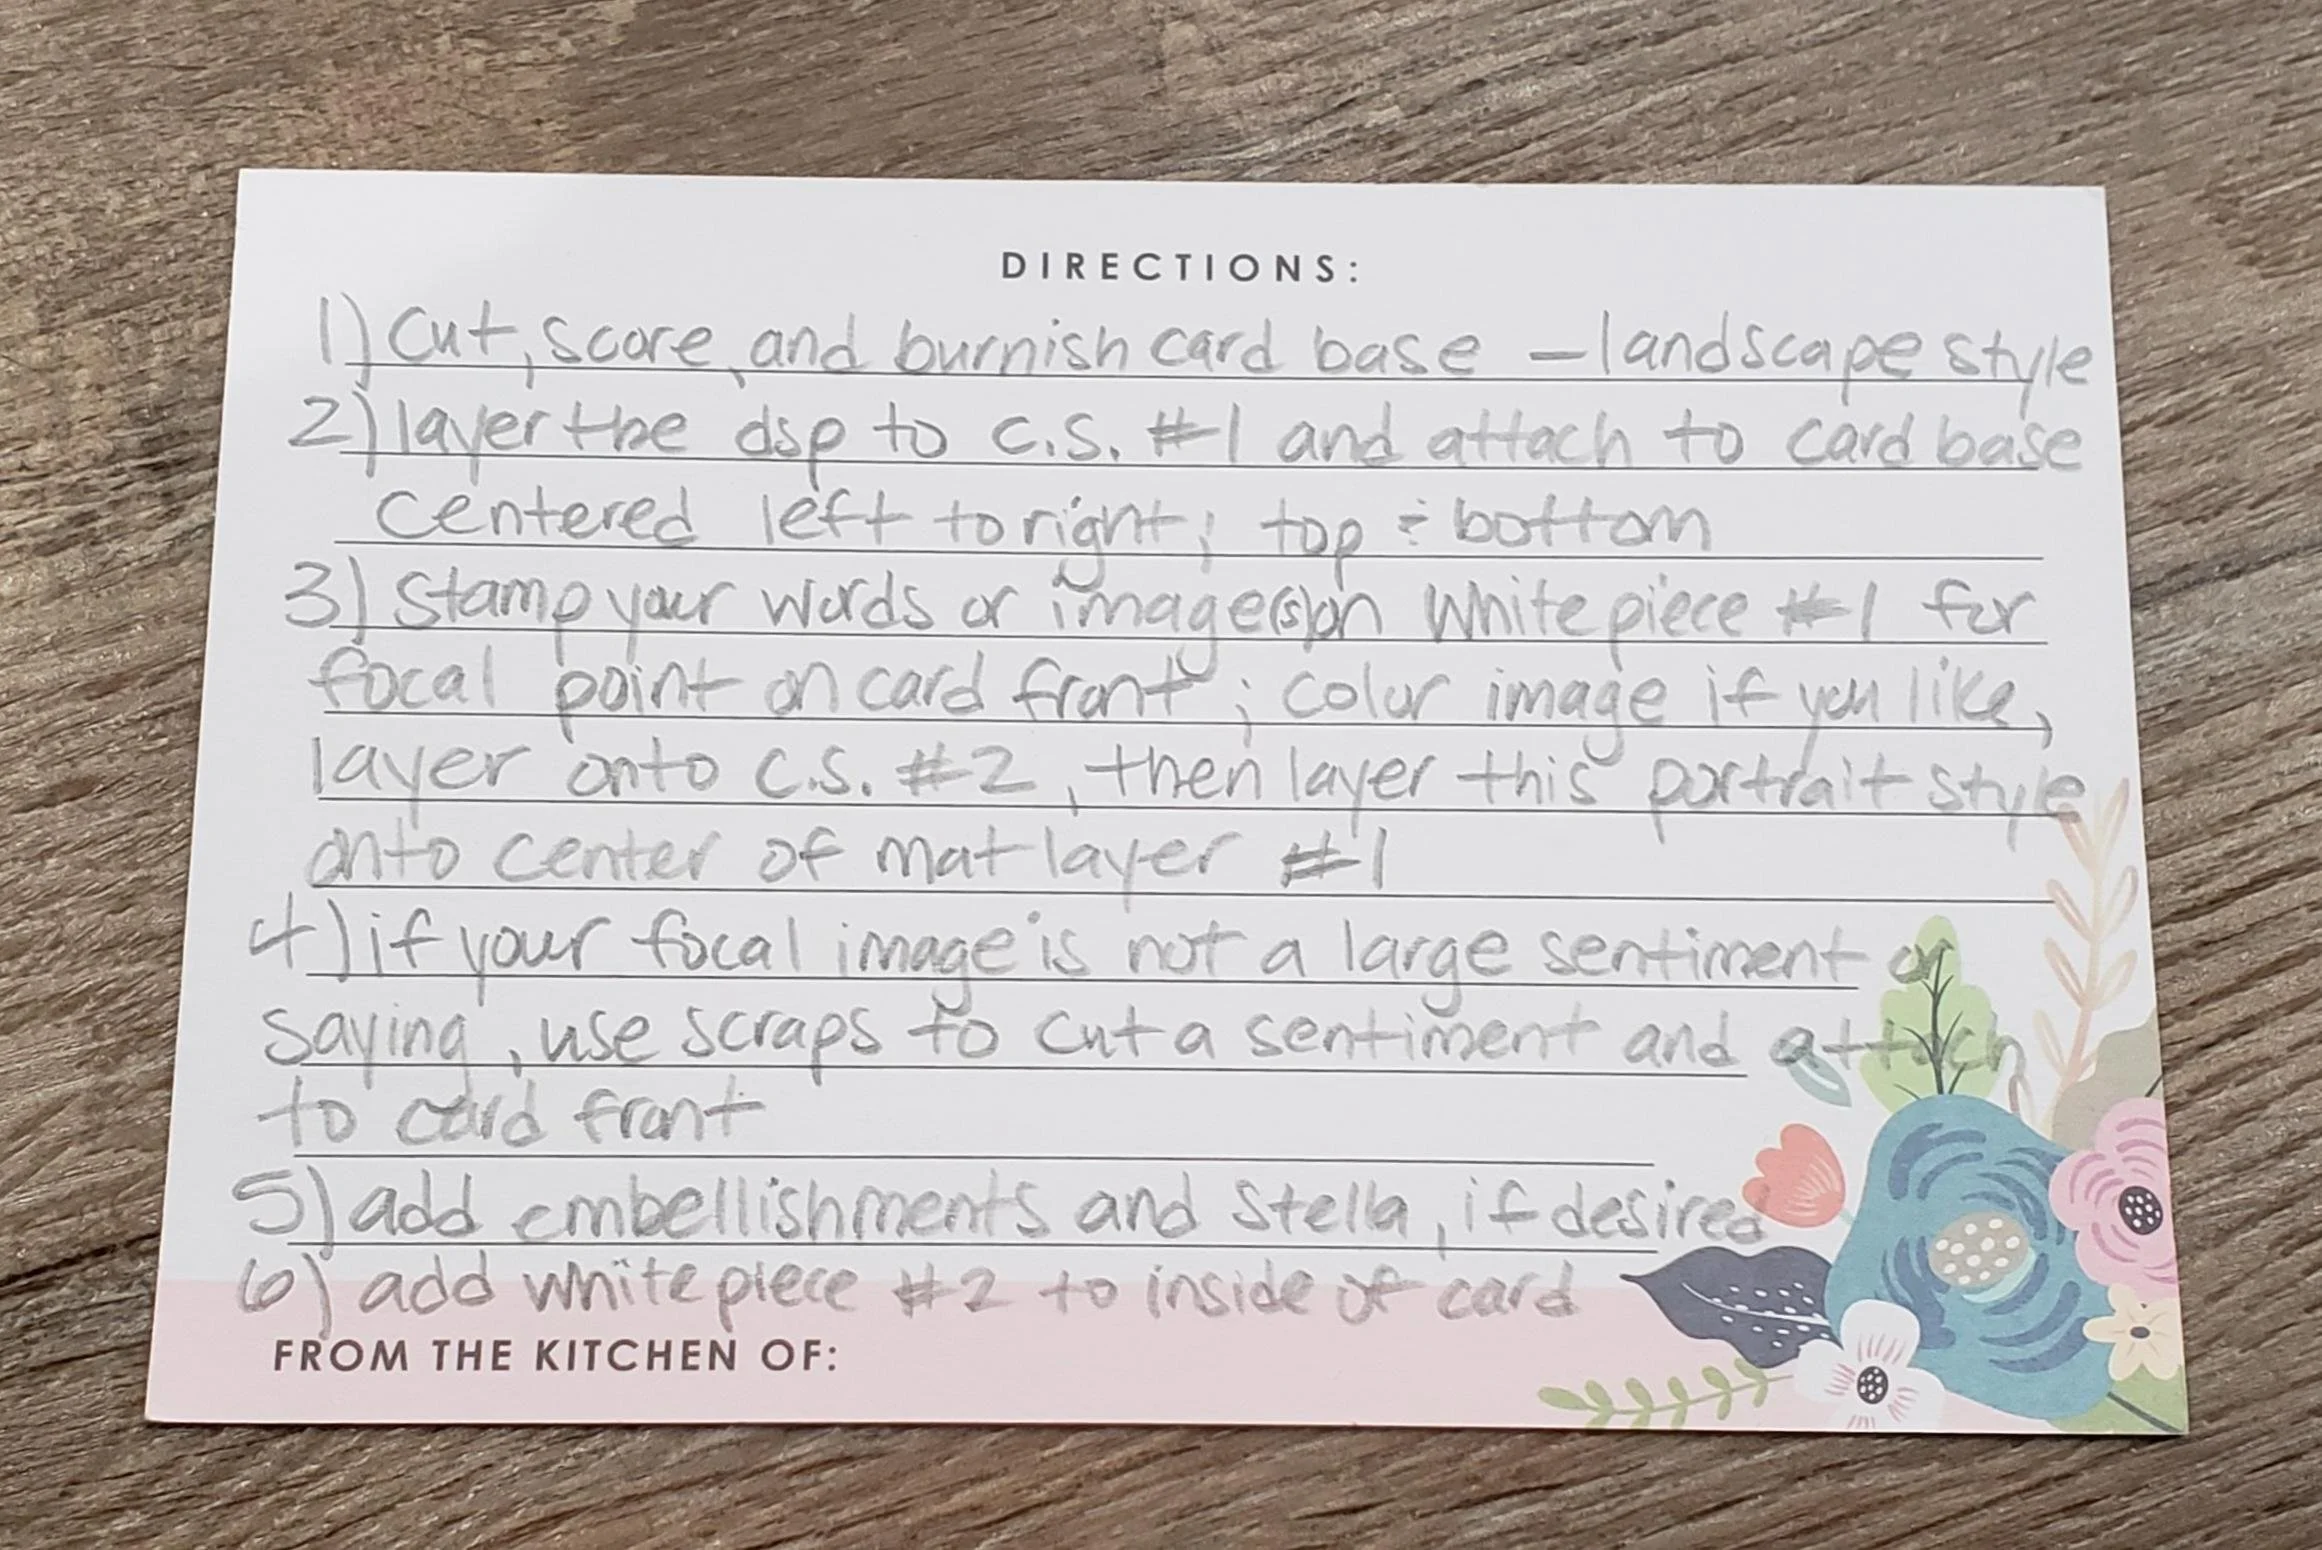 DIRECTIONS:
1) Cut, score, and burnish card base – landscape style
2) layer the dsp to c.s. #1 and attach to card base
centered left to right; top & bottom
3) Stamp your words or image(s) on white piece #1 for
focal point on card front; color image if you like,
layer onto c.s. #2, then layer this portrait style
onto center of mat layer #1
4) if your focal image is not a large sentiment or
saying, use scraps to cut a sentiment and attach
to card front
5) add embellishments and Stella, if desired
6) add white piece #2 to inside of card
FROM THE KITCHEN OF: